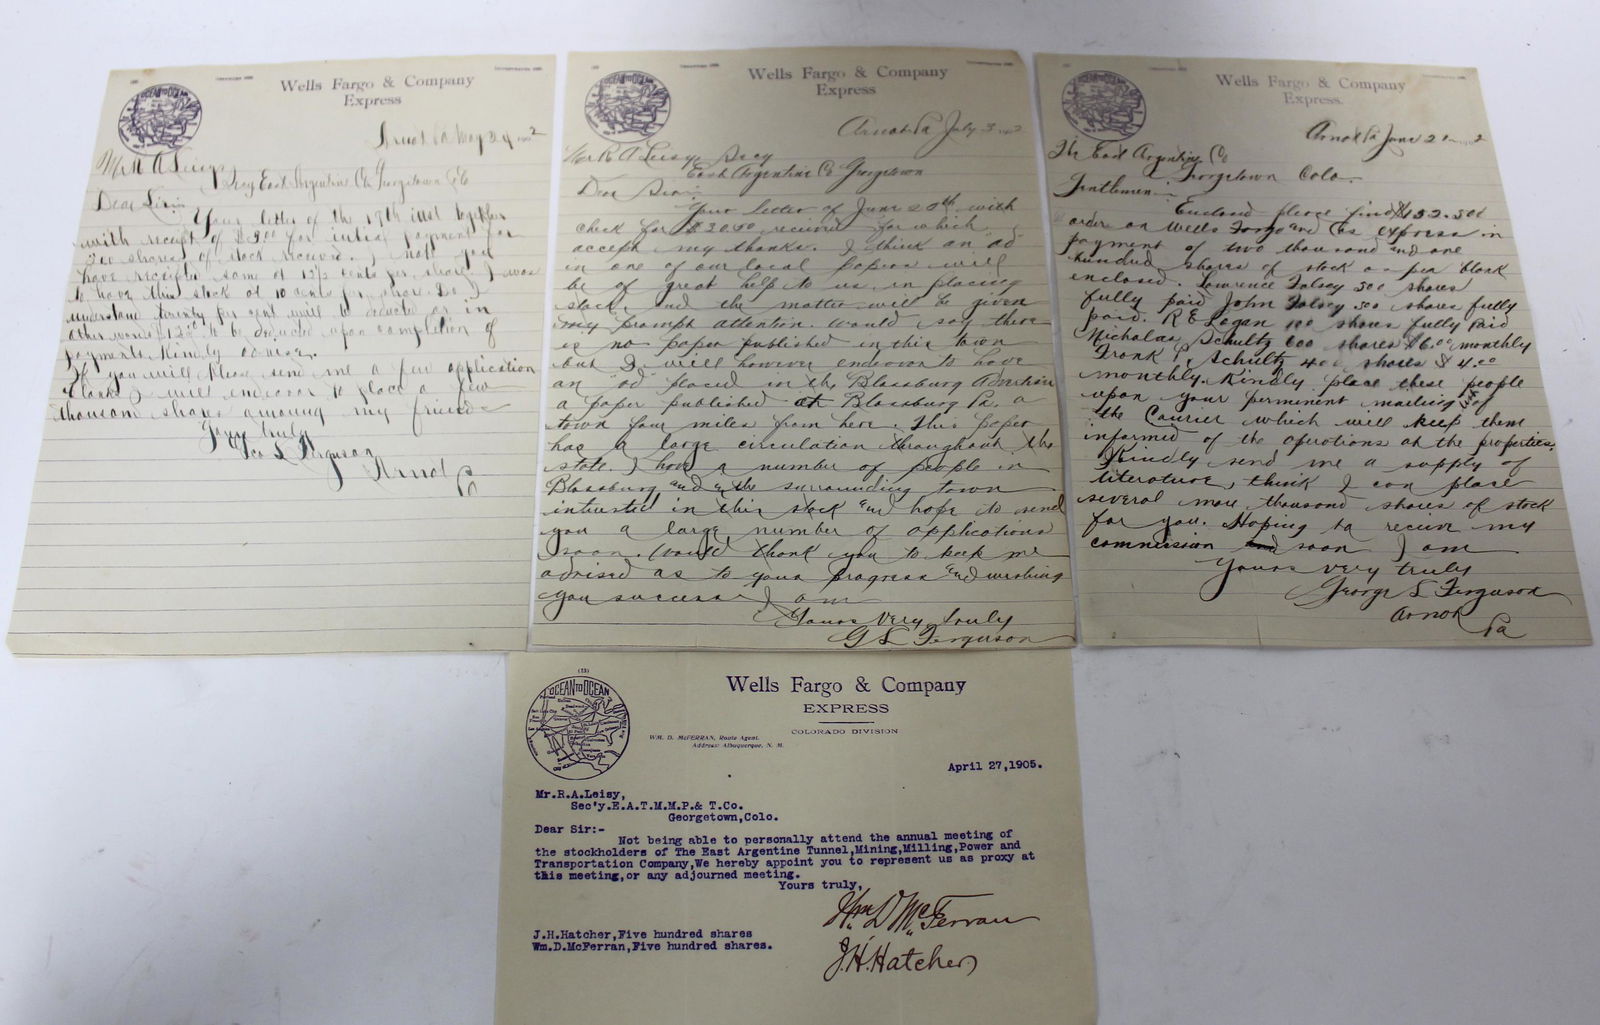 Wells Fargo & Company
Express
Arnot Pa May 24 1902
Mr R A Leisy
Secy East Argentine Co Georgetown
Dear Sir:
Your letter of the 19th inst together
with receipt of $3.00 for initial payment for
300 shares of stock received. I note you
have receipted same at 12½ cents per share I was
to have this stock at 10 cents per share. Do I
understand twenty per cent will be deducted or in
other words to be deducted upon completion of
payments. Kindly advise.
If you will please send me a few application
blanks I will endeavor to place a few
thousand shares among my friends
Yours truly
Geo L Ferguson
Arnot
Pa
Wells Fargo & Company
Express
Arnot Pa July 3 1902
Mr R A Leisy Secy
East Argentine Co Georgetown
Dear Sir:
Your letter of June 20th with
check for $30.00 received for which
accept my thanks. I think an "ad"
in one of our local papers will
be of great help to us in placing
stock and the matter will be given
my prompt attention. Would say there
is no paper published in this town
but I will however endevor to have
an "ad" placed in the Blossburg
a paper published at Blossburg Pa. a
town four miles from here. This paper
has a large circulation throughout the
state. I have a number of people in
Blossburg and in the surrounding town
intrusted in this stock and hope to send
you a large number of applications
soon. Would thank you to keep me
advised as to your progress and wishing
you success I am
Yours very truly
G L Ferguson
Wells Fargo & Company
Express.
Arnot Pa June 2 1902
The East Argentine Co
Georgetown Colo.
Gentlemen:
Enclosed please find $132.50
order on Wells Fargo and Co express in
payment of two thousand and one
hundred shares of stock as per blank
enclosed. Lawrence Falsey 300 shares
fully paid John Falsey 500 shares fully
paid. R E Logan 100 shares fully paid
Nicholas Schultz 600 shares $6.00 monthly
Frank P. Schultz 400 shares $4.00
monthly. Kindly place these people
upon your perminent mailing list of
the Courier which will keep them
informed of the operations at the properties.
Kindly send me a supply of
literature, think I can place
several more thousand shares of stock
for you. Hoping to receive my
commission soon I am
Yours very truly
George L Ferguson
Arnot
Pa
(23)
OCEAN TO OCEAN
Wells Fargo & Company
EXPRESS
COLORADO DIVISION
WM. D. McFERRAN, Route Agent.
Address: Albuquerque, N. M.
April 27,1905.
Mr.R.A.Leisy,
Sec'y.E.A.T.M.M.P.& T.Co.
Georgetown,Colo.
Dear Sir:-
Not being able to personally attend the annual meeting of
the stockholders of The East Argentine Tunnel,Mining,Milling,Power and
Transportation Company,We hereby appoint you to represent us as proxy at
this meeting,or any adjourned meeting.
Yours truly,
Wm D McFerran
J.H.Hatcher
J.H.Hatcher,Five hundred shares
Wm.D.McFerran,Five hundred shares.